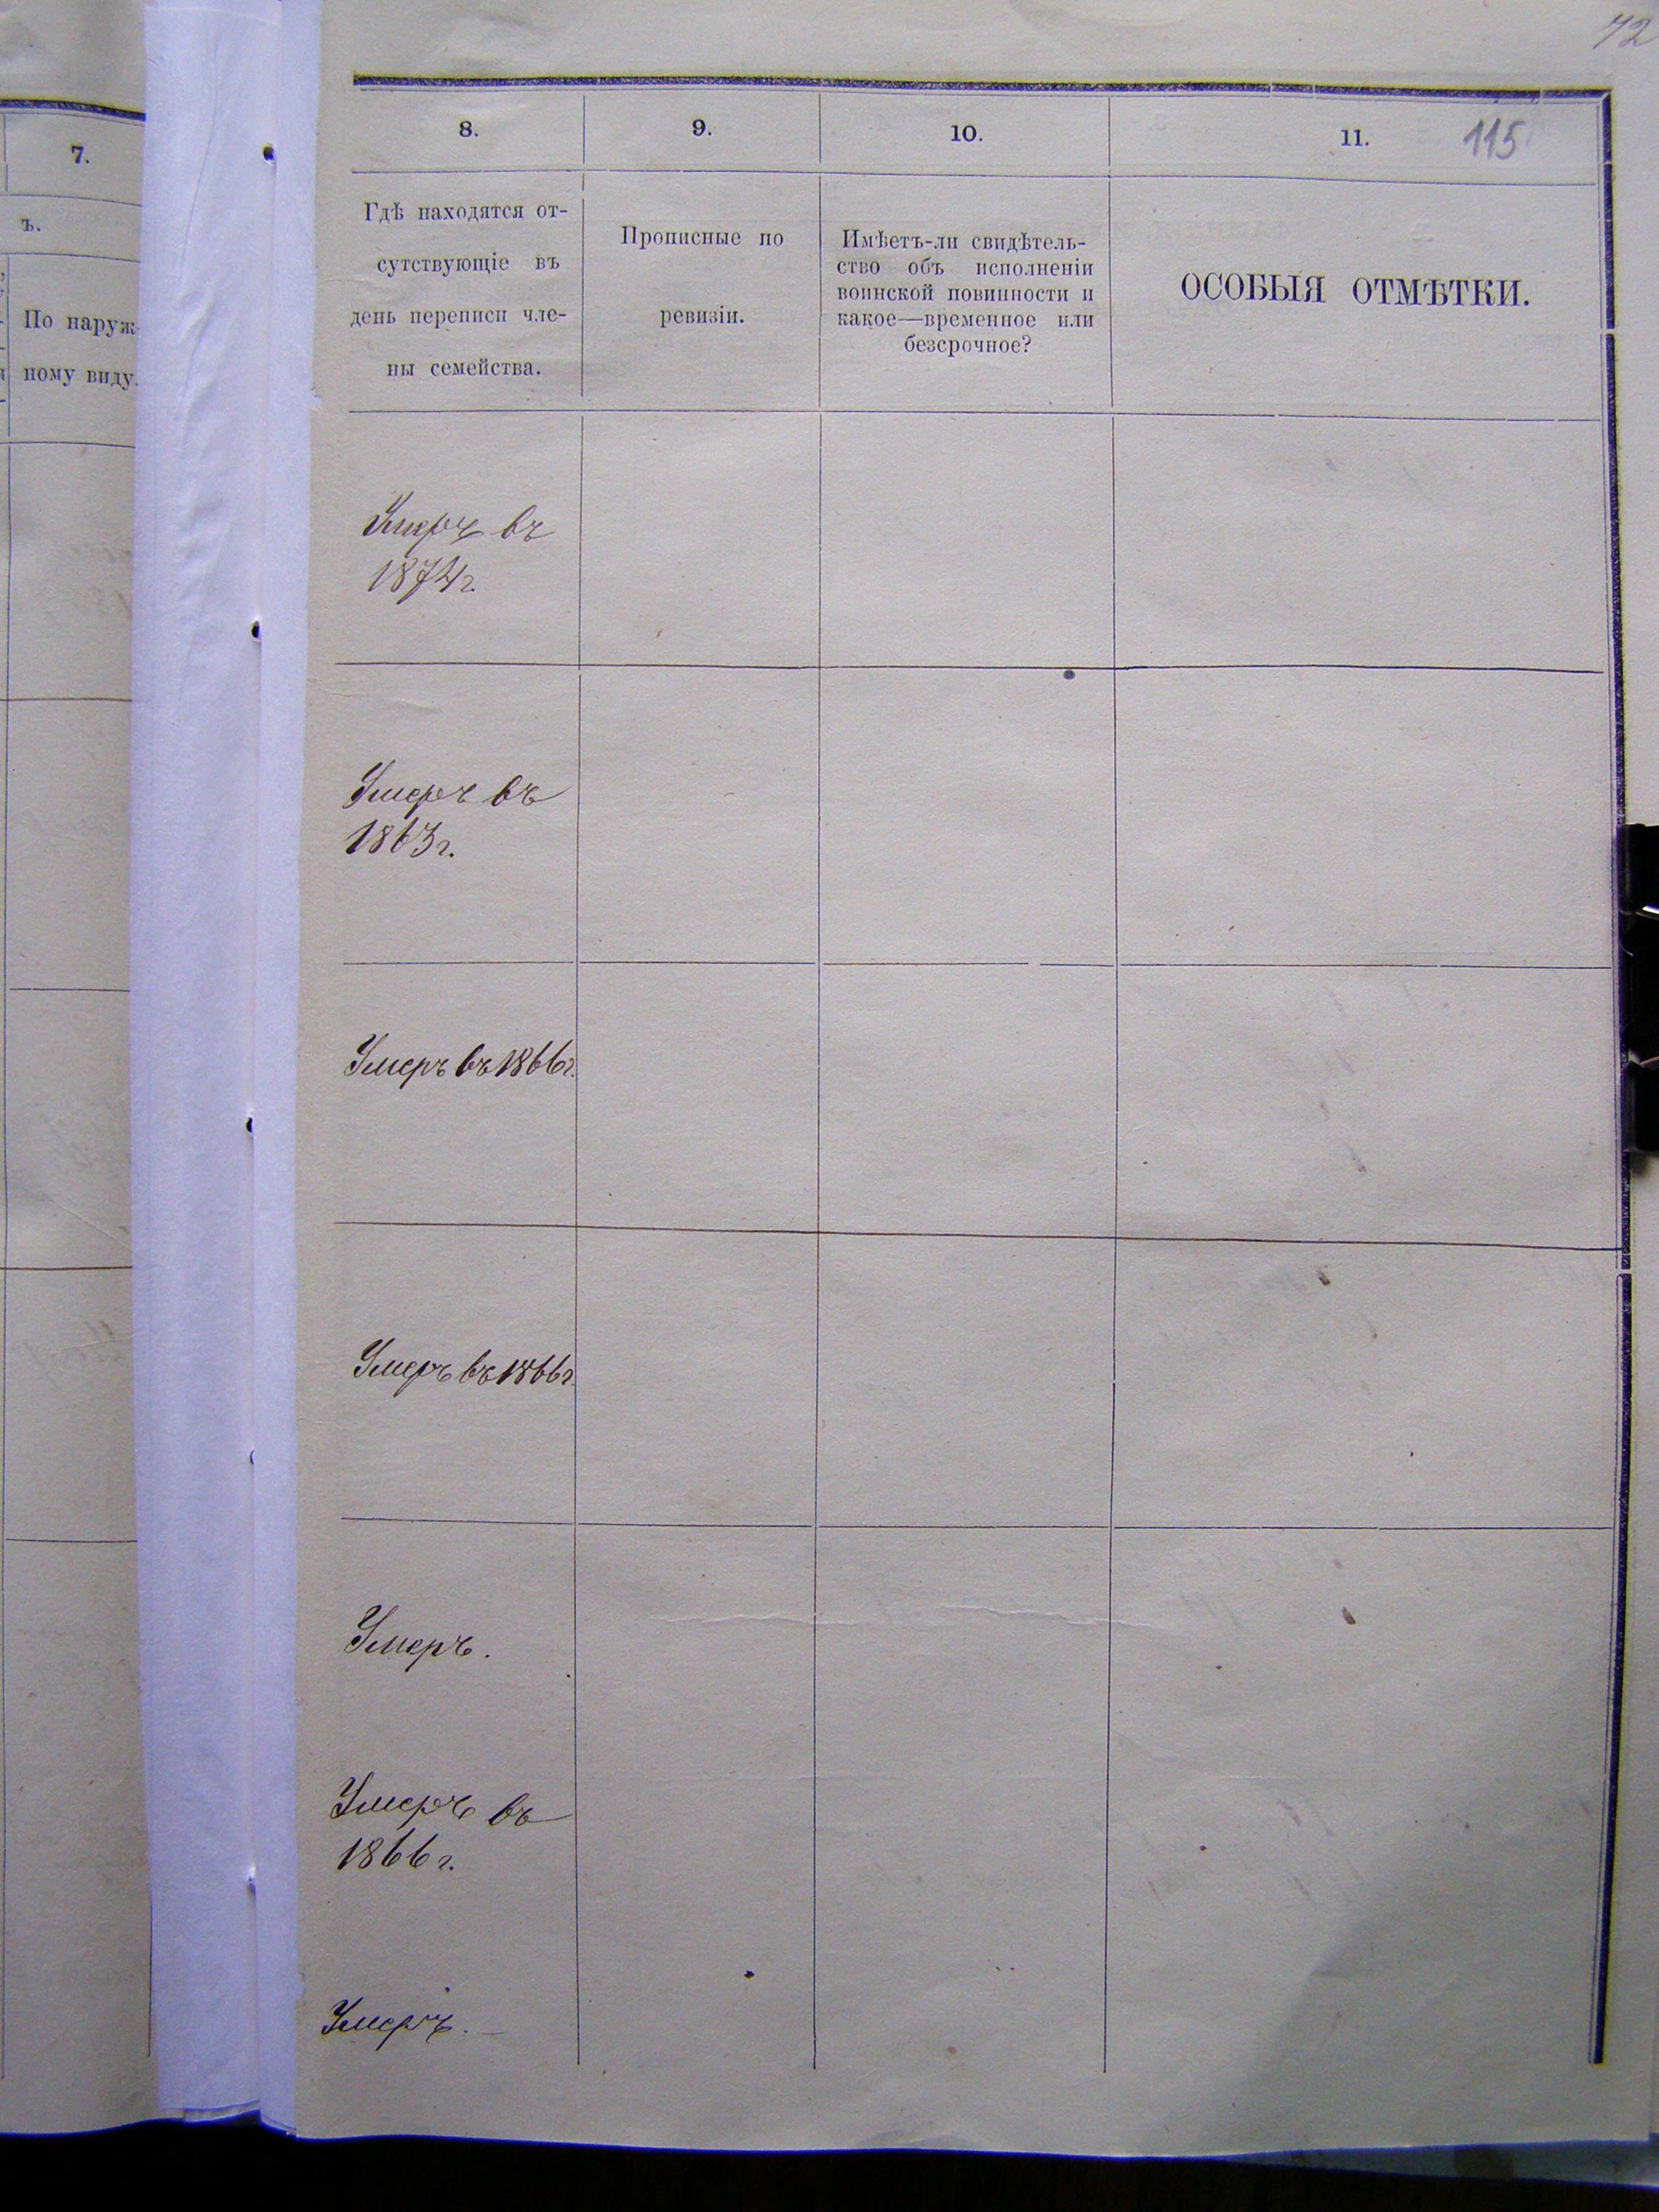 72
7.
ъ.
По наруж-
ному виду.
8.
9.
10.
11.
115
Гдѣ находятся от-
сутствующіе въ
день переписи чле-
ны семейства.
Прописные по
ревизіи.
Имѣетъ-ли свидѣтель-
ство объ исполненіи
воинской повинности и
какое—временное или
безсрочное?
ОСОБЫЯ ОТМѢТКИ.
Умеръ въ
1874г.
Умеръ въ
1863г.
Умеръ въ 1866г.
Умеръ въ 1866г.
Умеръ.
Умеръ въ
1866г.
Умеръ.